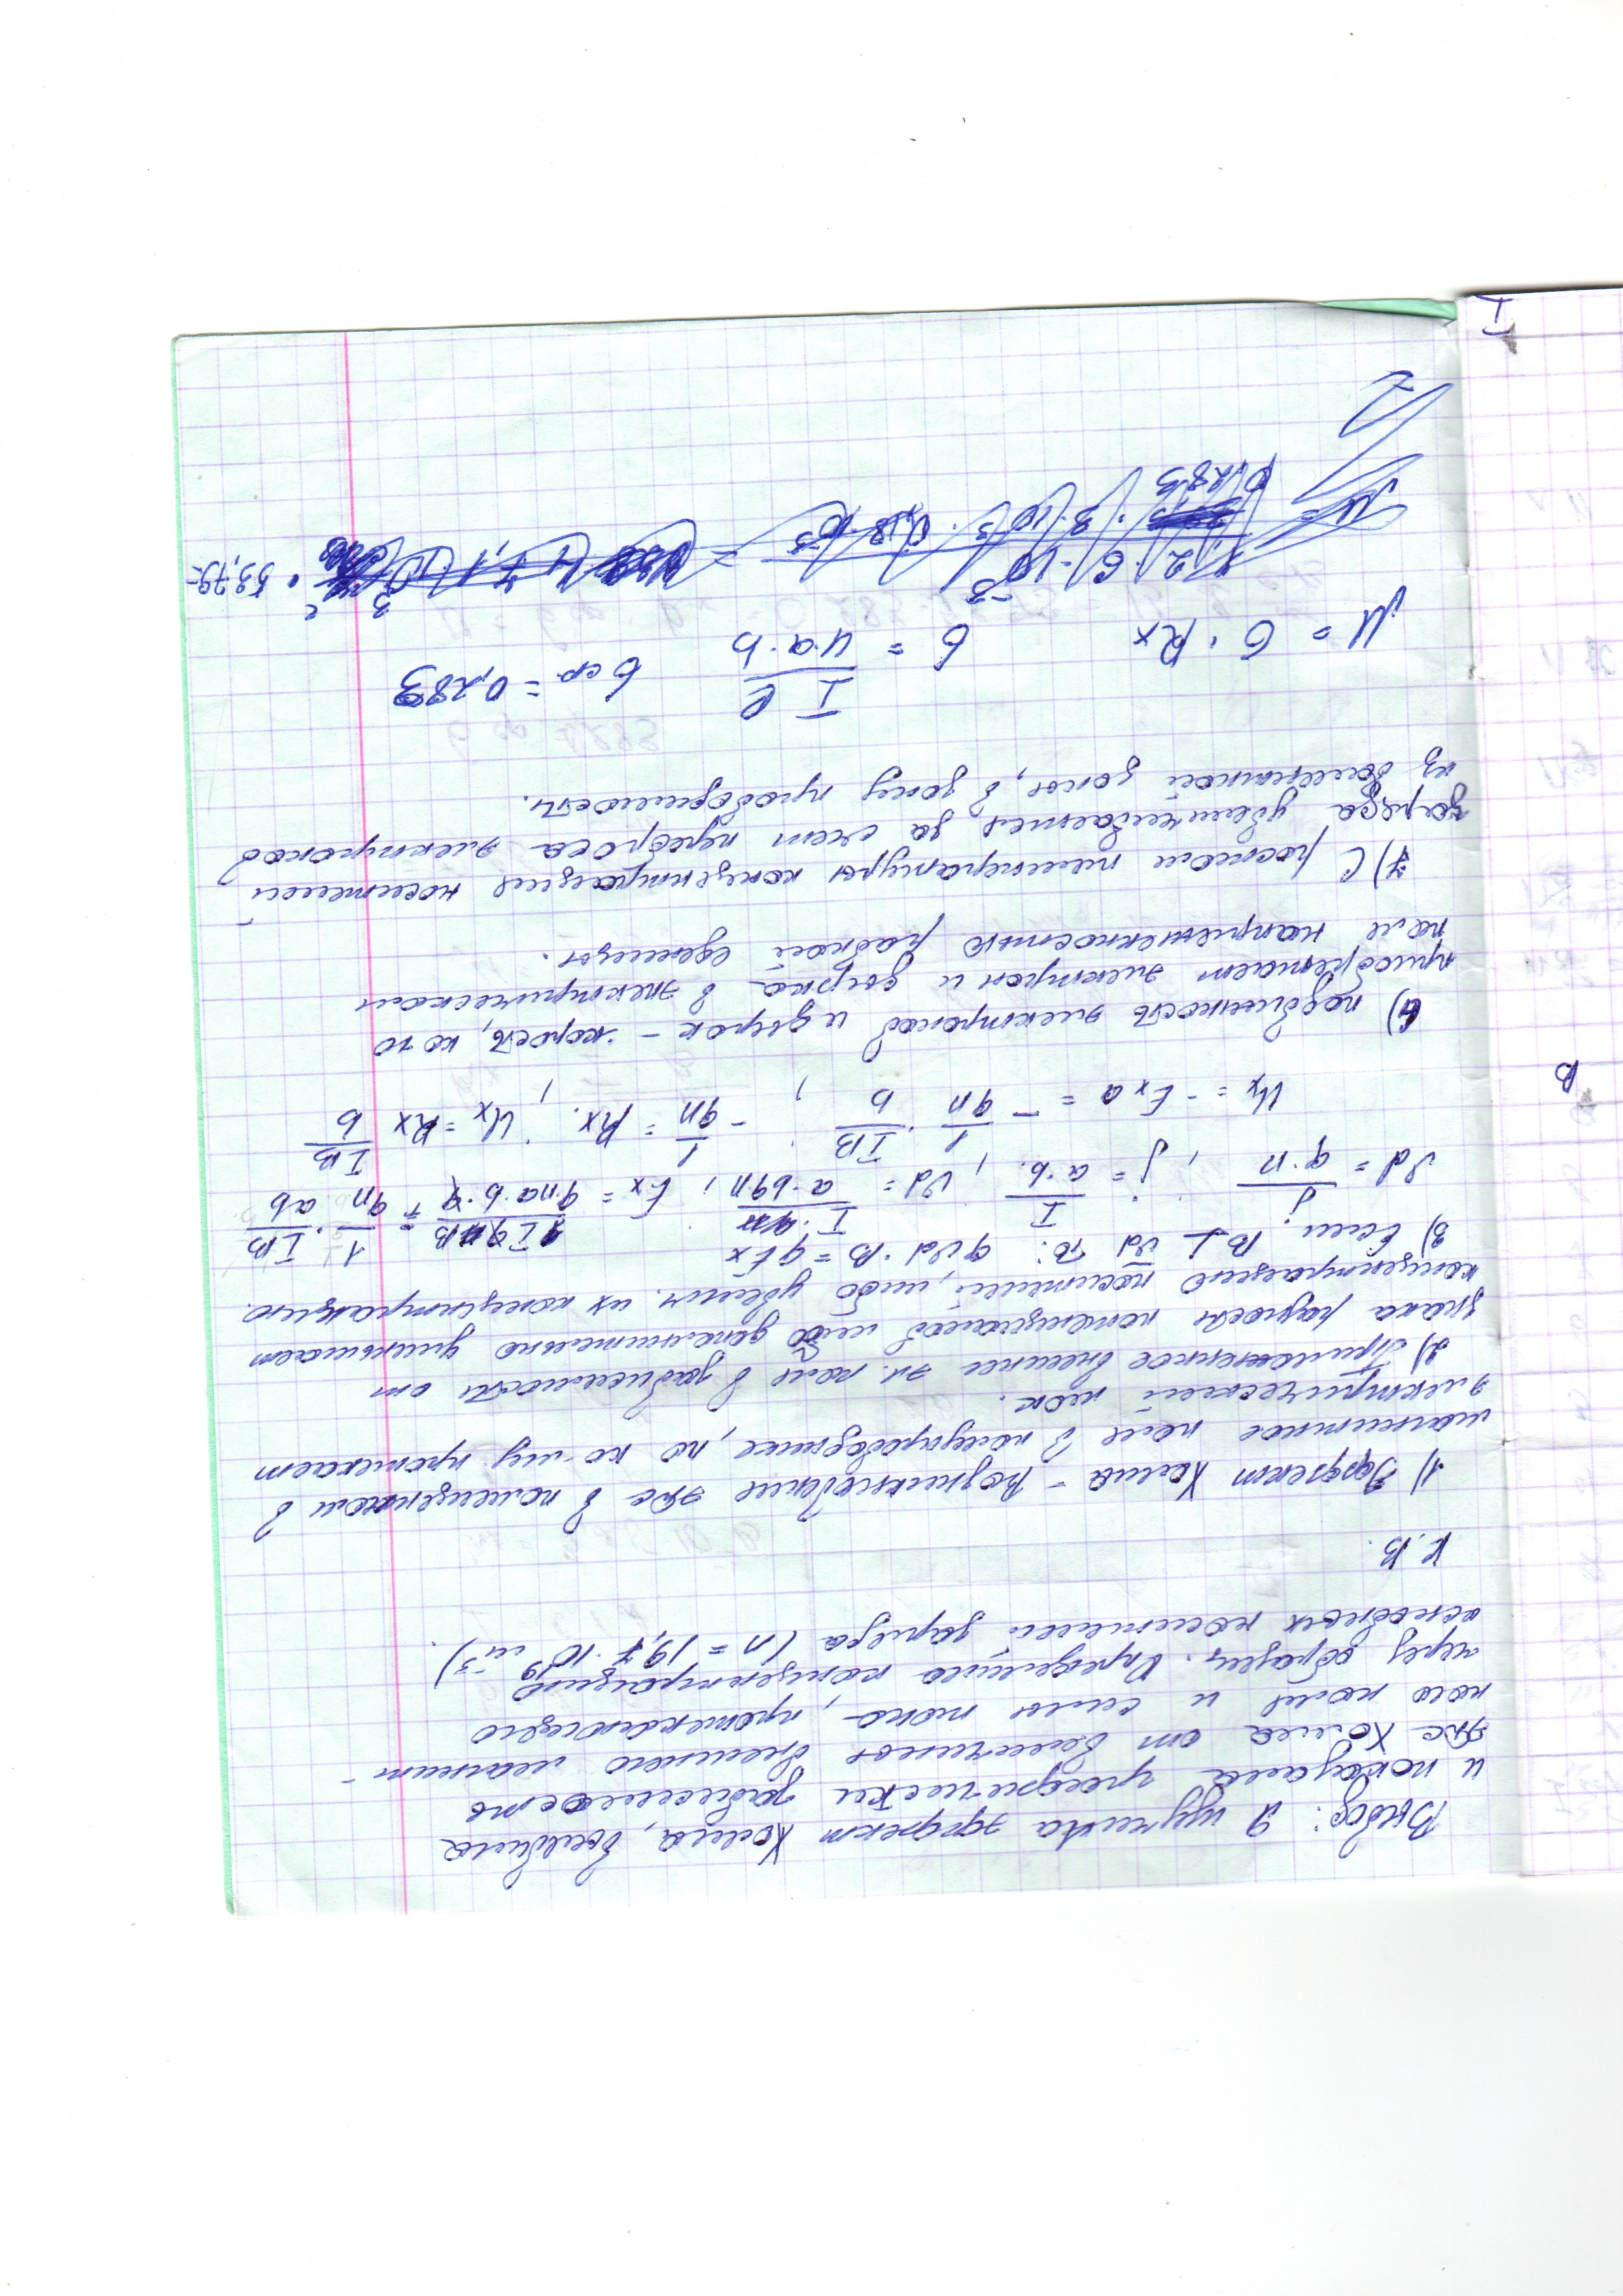 Вывод: Я изучила эффект Холла, выявила
и показала графически зависимость
ЭДС Холла от величины внешнего магнит-
ного поля и силы тока, протекающего
через образец. Определила концентрацию
основных носителей заряда (n = 19,7 · 10^19 м^-3).
К.В.
1) Эффект Холла – Возникновение ЭДС в помещенном в
магнитное поле в полупроводнике, по ко-му протекает
электрический ток.
2) Приложенное внешнее эл. поле в зависимости от
знака разности потенциалов либо дополнительно уменьшает
концентрацию носителей, либо увелич. их концентрацию.
3) Если B ⊥ υd то: qυd · B = qEx
υd = j / (q · n) , j = I / (a · b) , υd = I / (a · bqn) , Ex = qIB / (q · na · b · q) = 1/(qn) · IB/(ab)
Ux = - Ex a = - 1/(qn) · IB/b ; - 1/(qn) = Rx ; Ux = Rx IB/b
6) подвижность электронов и дырок – скорость, кото
приобретает электрон и дырка в электрическом
поле напряженностью равной еденицы.
7) С ростом температуры концентрация носителей
заряда увеличивается за счет переброса электронов
из валентной зоны, в зону проводимости.
M = б · Rx б = I l / (U · a · b) бср = 0,283
· 53,79=
0,283
B
I